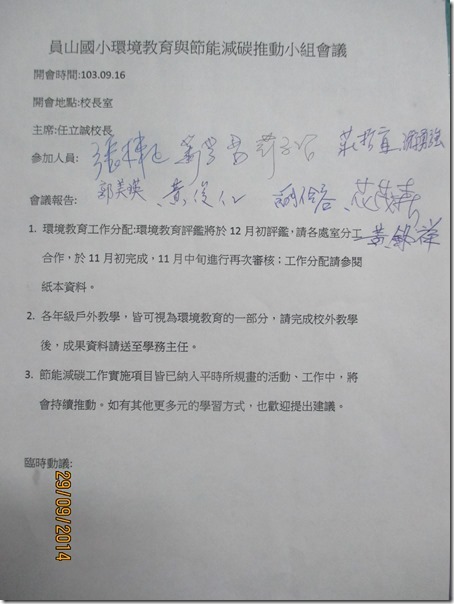 員山國小環境教育與節能減碳推動小組會議
開會時間:103.09.16
開會地點:校長室
主席:任立誠校長
參加人員:
會議報告: 郭美瑛
1. 環境教育工作分配:環境教育評鑑將於 12 月初評鑑,請各處室分工
合作,於 11 月初完成,11 月中旬進行再次審核;工作分配請參閱
紙本資料。
黃銘祥
2. 各年級戶外教學,皆可視為環境教育的一部分,請完成校外教學
後,成果資料請送至學務主任。
3. 節能減碳工作實施項目皆已納入平時所規畫的活動、工作中,將
會持續推動。如有其他更多元的學習方式,也歡迎提出建議。
臨時動議:
29/09/2014